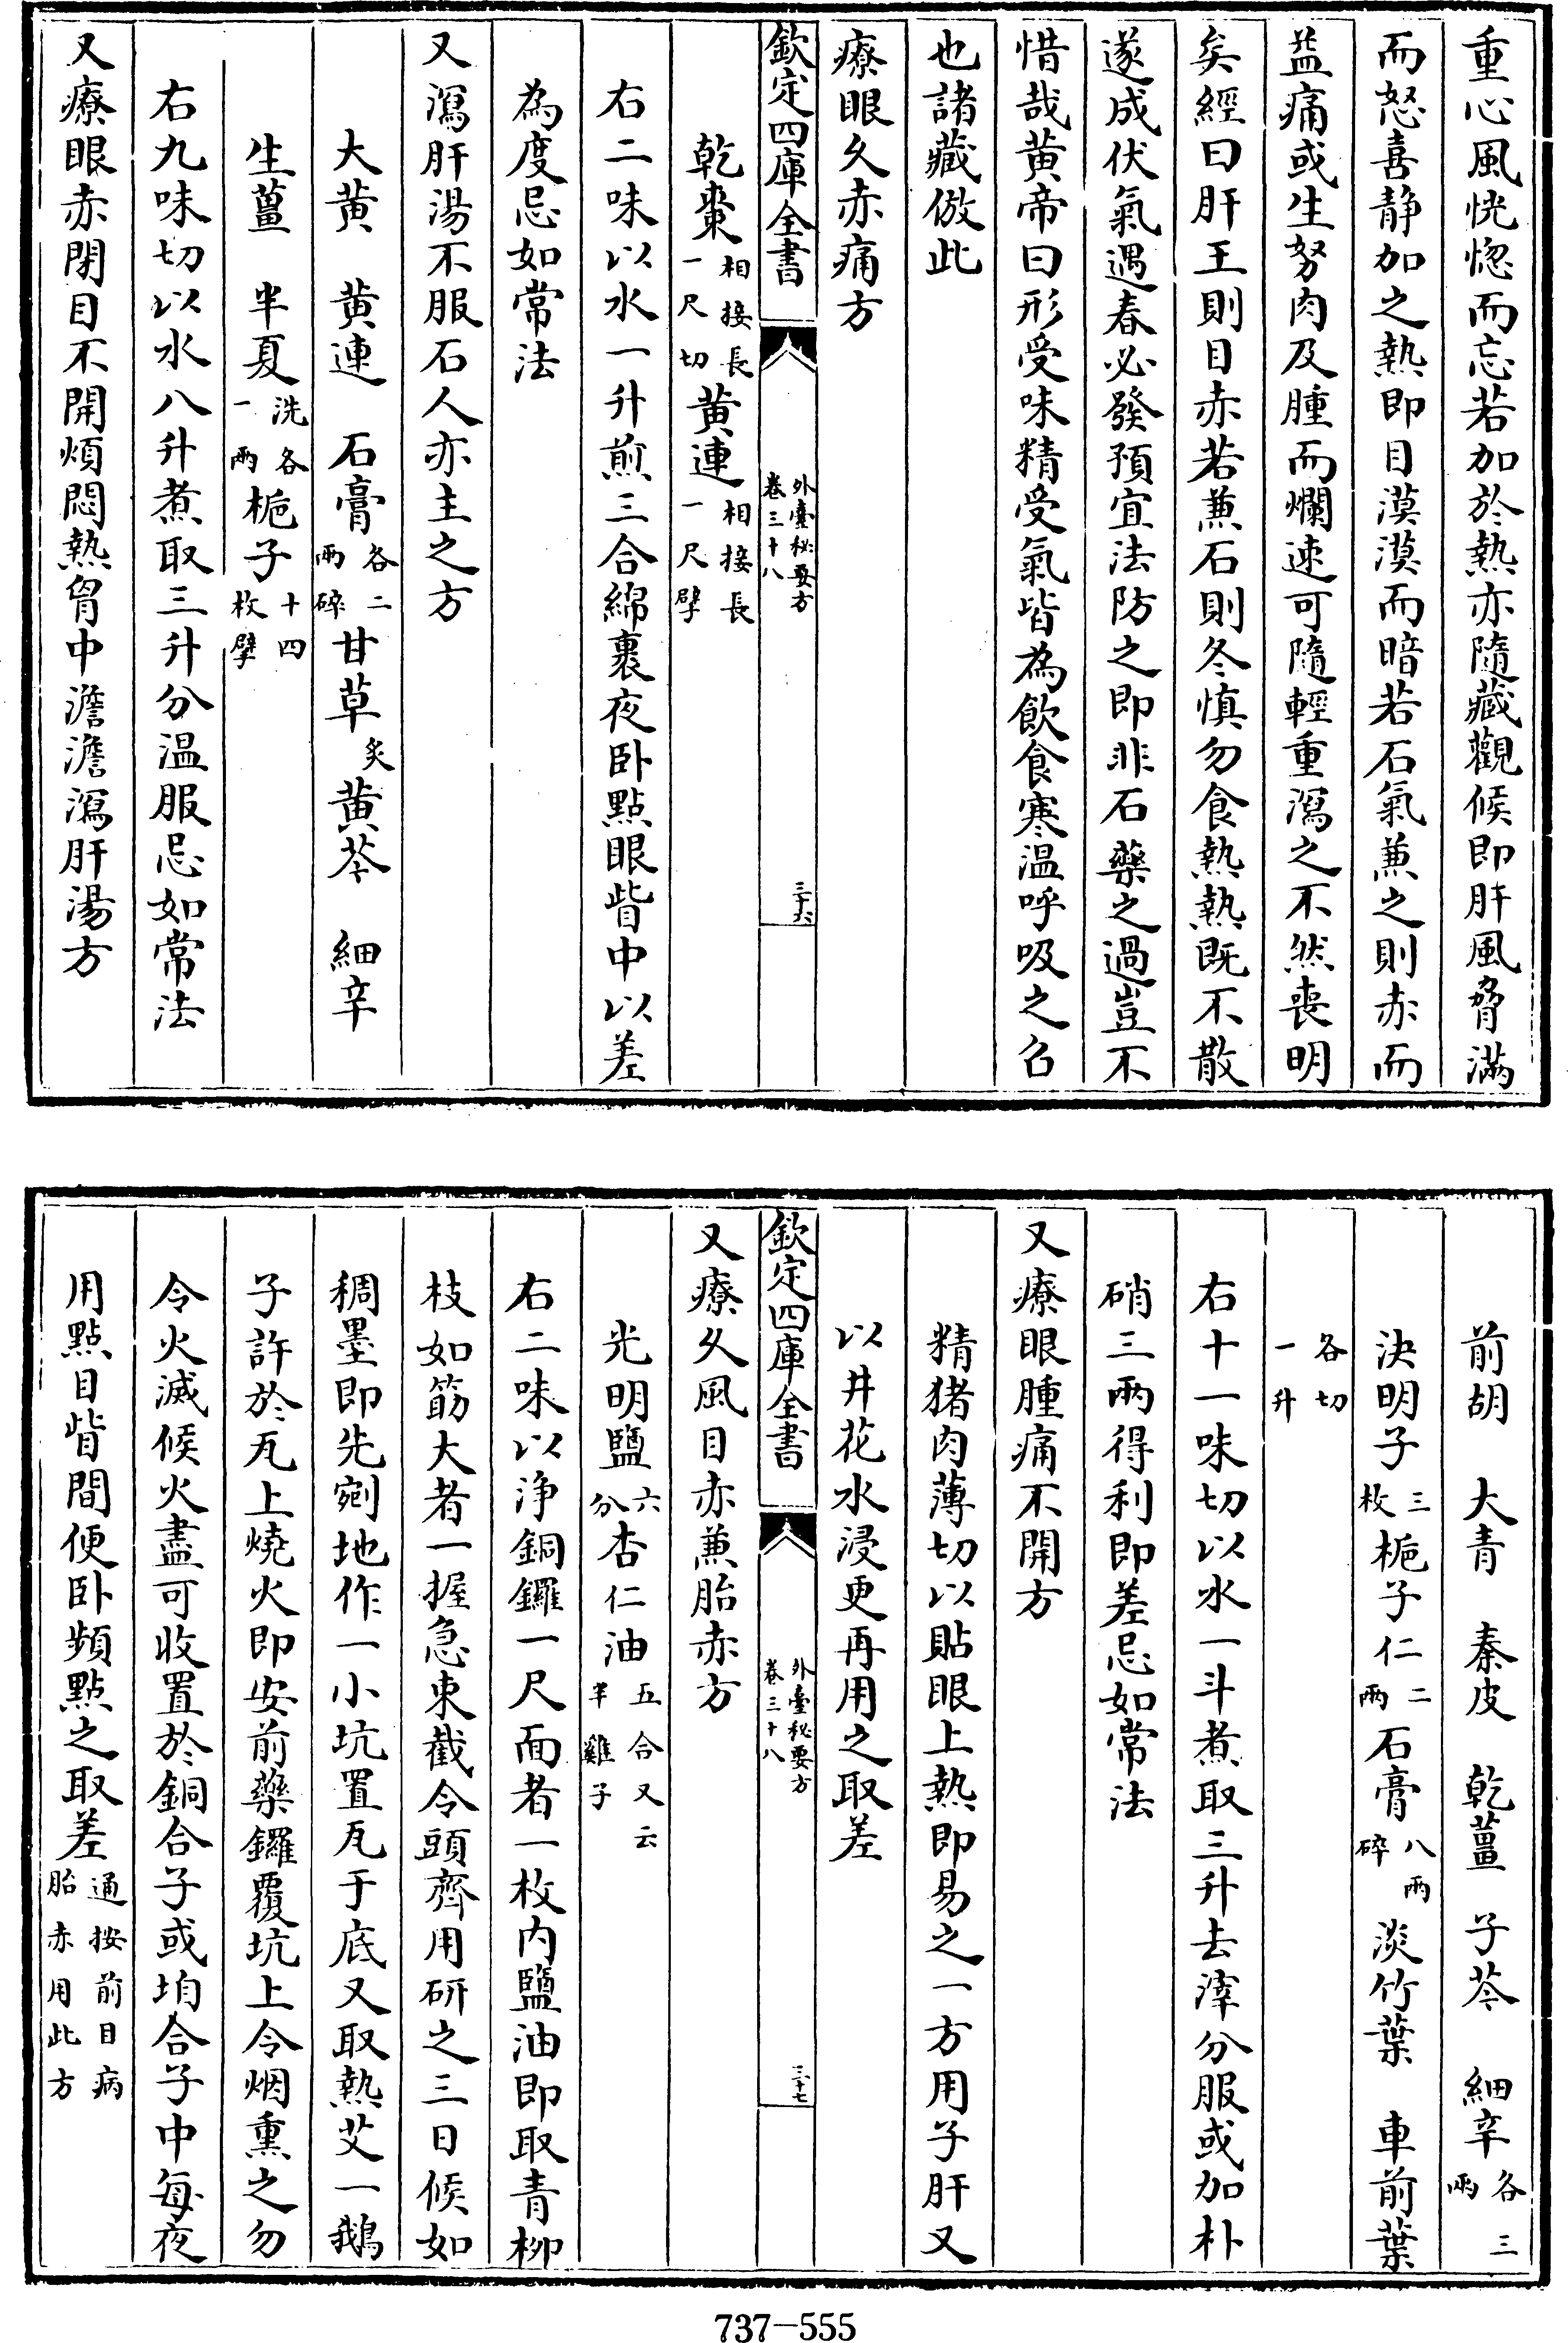 重心風恍惚而忘若加於熱亦隨藏觀候即肝風脅滿
而怒喜静加之熱即目漠漠而暗若石氣兼之則赤而
益痛或生努肉及腫而爛速可隨輕重瀉之不然喪明
矣經曰肝王則目赤若兼石則冬慎勿食熱熱既不散
遂成伏氣遇春必發預宜法防之即非石藥之過豈不
惜哉黄帝曰形受味精受氣皆為飲食寒温呼吸之召
也諸藏倣此
療眼久赤痛方
欽定四庫全書
外臺秘要方
卷三十八
三十六
乾棗相接長一尺切黄連相接長一尺擘
右二味以水一升煎三合綿裹夜卧點眼眥中以差
為度忌如常法
又瀉肝湯不服石人亦主之方
大黄 黄連 石膏各二兩碎甘草炙黄芩 細辛
生薑 半夏洗各一兩梔子十四枚擘
右九味切以水八升煮取三升分温服忌如常法
又療眼赤閉目不開煩悶熱胷中澹澹瀉肝湯方
前胡 大青 秦皮 乾薑 子芩 細辛各三兩
決明子三枚梔子仁二兩石膏八兩碎淡竹葉 車前葉
各切一升
右十一味切以水一斗煮取三升去滓分服或加朴
硝三兩得利即差忌如常法
又療眼腫痛不開方
精猪肉薄切以貼眼上熱即易之一方用子肝又
以井花水浸更再用之取差
欽定四庫全書
外臺秘要方
卷三十八
三十七
又療久風目赤兼胎赤方
光明鹽六分杏仁油五合又云半雞子
右二味以浄銅鑼一尺面者一枚内鹽油即取青柳
枝如筯大者一握急束截令頭齊用研之三日候如
稠墨即先剜地作一小坑置瓦于底又取熱艾一鵝
子許於瓦上燒火即安前藥鑼覆坑上令烟熏之勿
令火滅候火盡可收置於銅合子或垍合子中每夜
用點目眥間便卧頻點之取差通按前目病胎赤用此方
737-555